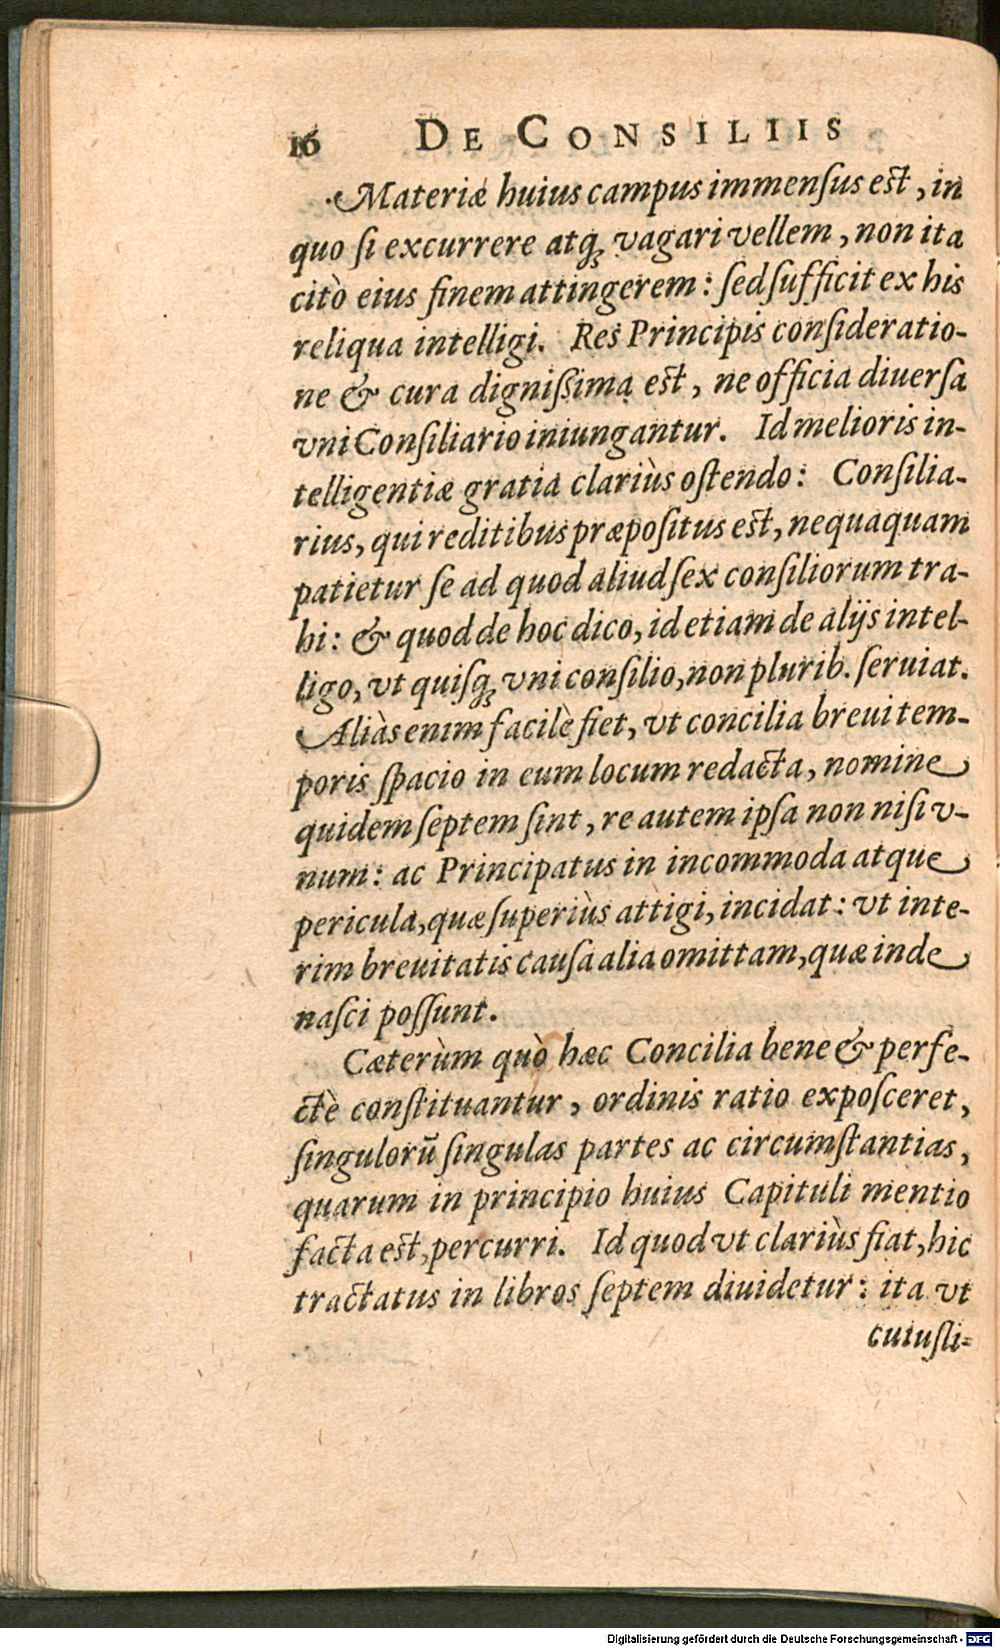 16 DE CONSILIIS
Materiæ huius campus immenſus est, in
quo ſi excurrere atq́ꝫ vagari vellem, non ita
citò eius finem attingerem: ſed ſufficit ex his
reliqua intelligi. Res Principis conſideratio-
ne & cura digniſsima est, ne officia diuerſa
vni Conſiliario iniungantur. Id melioris in-
telligentiæ gratia clariùs oſtendo: Conſilia-
rius, qui reditibus præpoſitus est, nequaquam
patietur ſe ad quod aliud ſex conſiliorum tra-
hi: & quod de hoc dico, id etiam de alijs intel-
ligo, vt quiſq́ꝫ vni conſilio, non plurib. ſeruiat.
Aliàs enim facilè fiet, vt concilia breui tem-
poris ſpacio in eum locum redacta, nomine
quidem ſeptem ſint, re autem ipſa non niſi v-
num: ac Principatus in incommoda atque
pericula, quæ ſuperiùs attigi, incidat: vt inte-
rim breuitatis cauſa alia omittam, quæ inde
naſci poſſunt.
Cæterùm quò hæc Concilia bene & perfe-
ctè conſtituantur, ordinis ratio expoſceret,
ſingulorũ ſingulas partes ac circumſtantias,
quarum in principio huius Capituli mentio
facta est, percurri. Id quod vt clariùs fiat, hic
tractatus in libros ſeptem diuidetur: ita vt
cuiuſli-
Digitalisierung gefördert durch die Deutsche Forschungsgemeinschaft - DFG